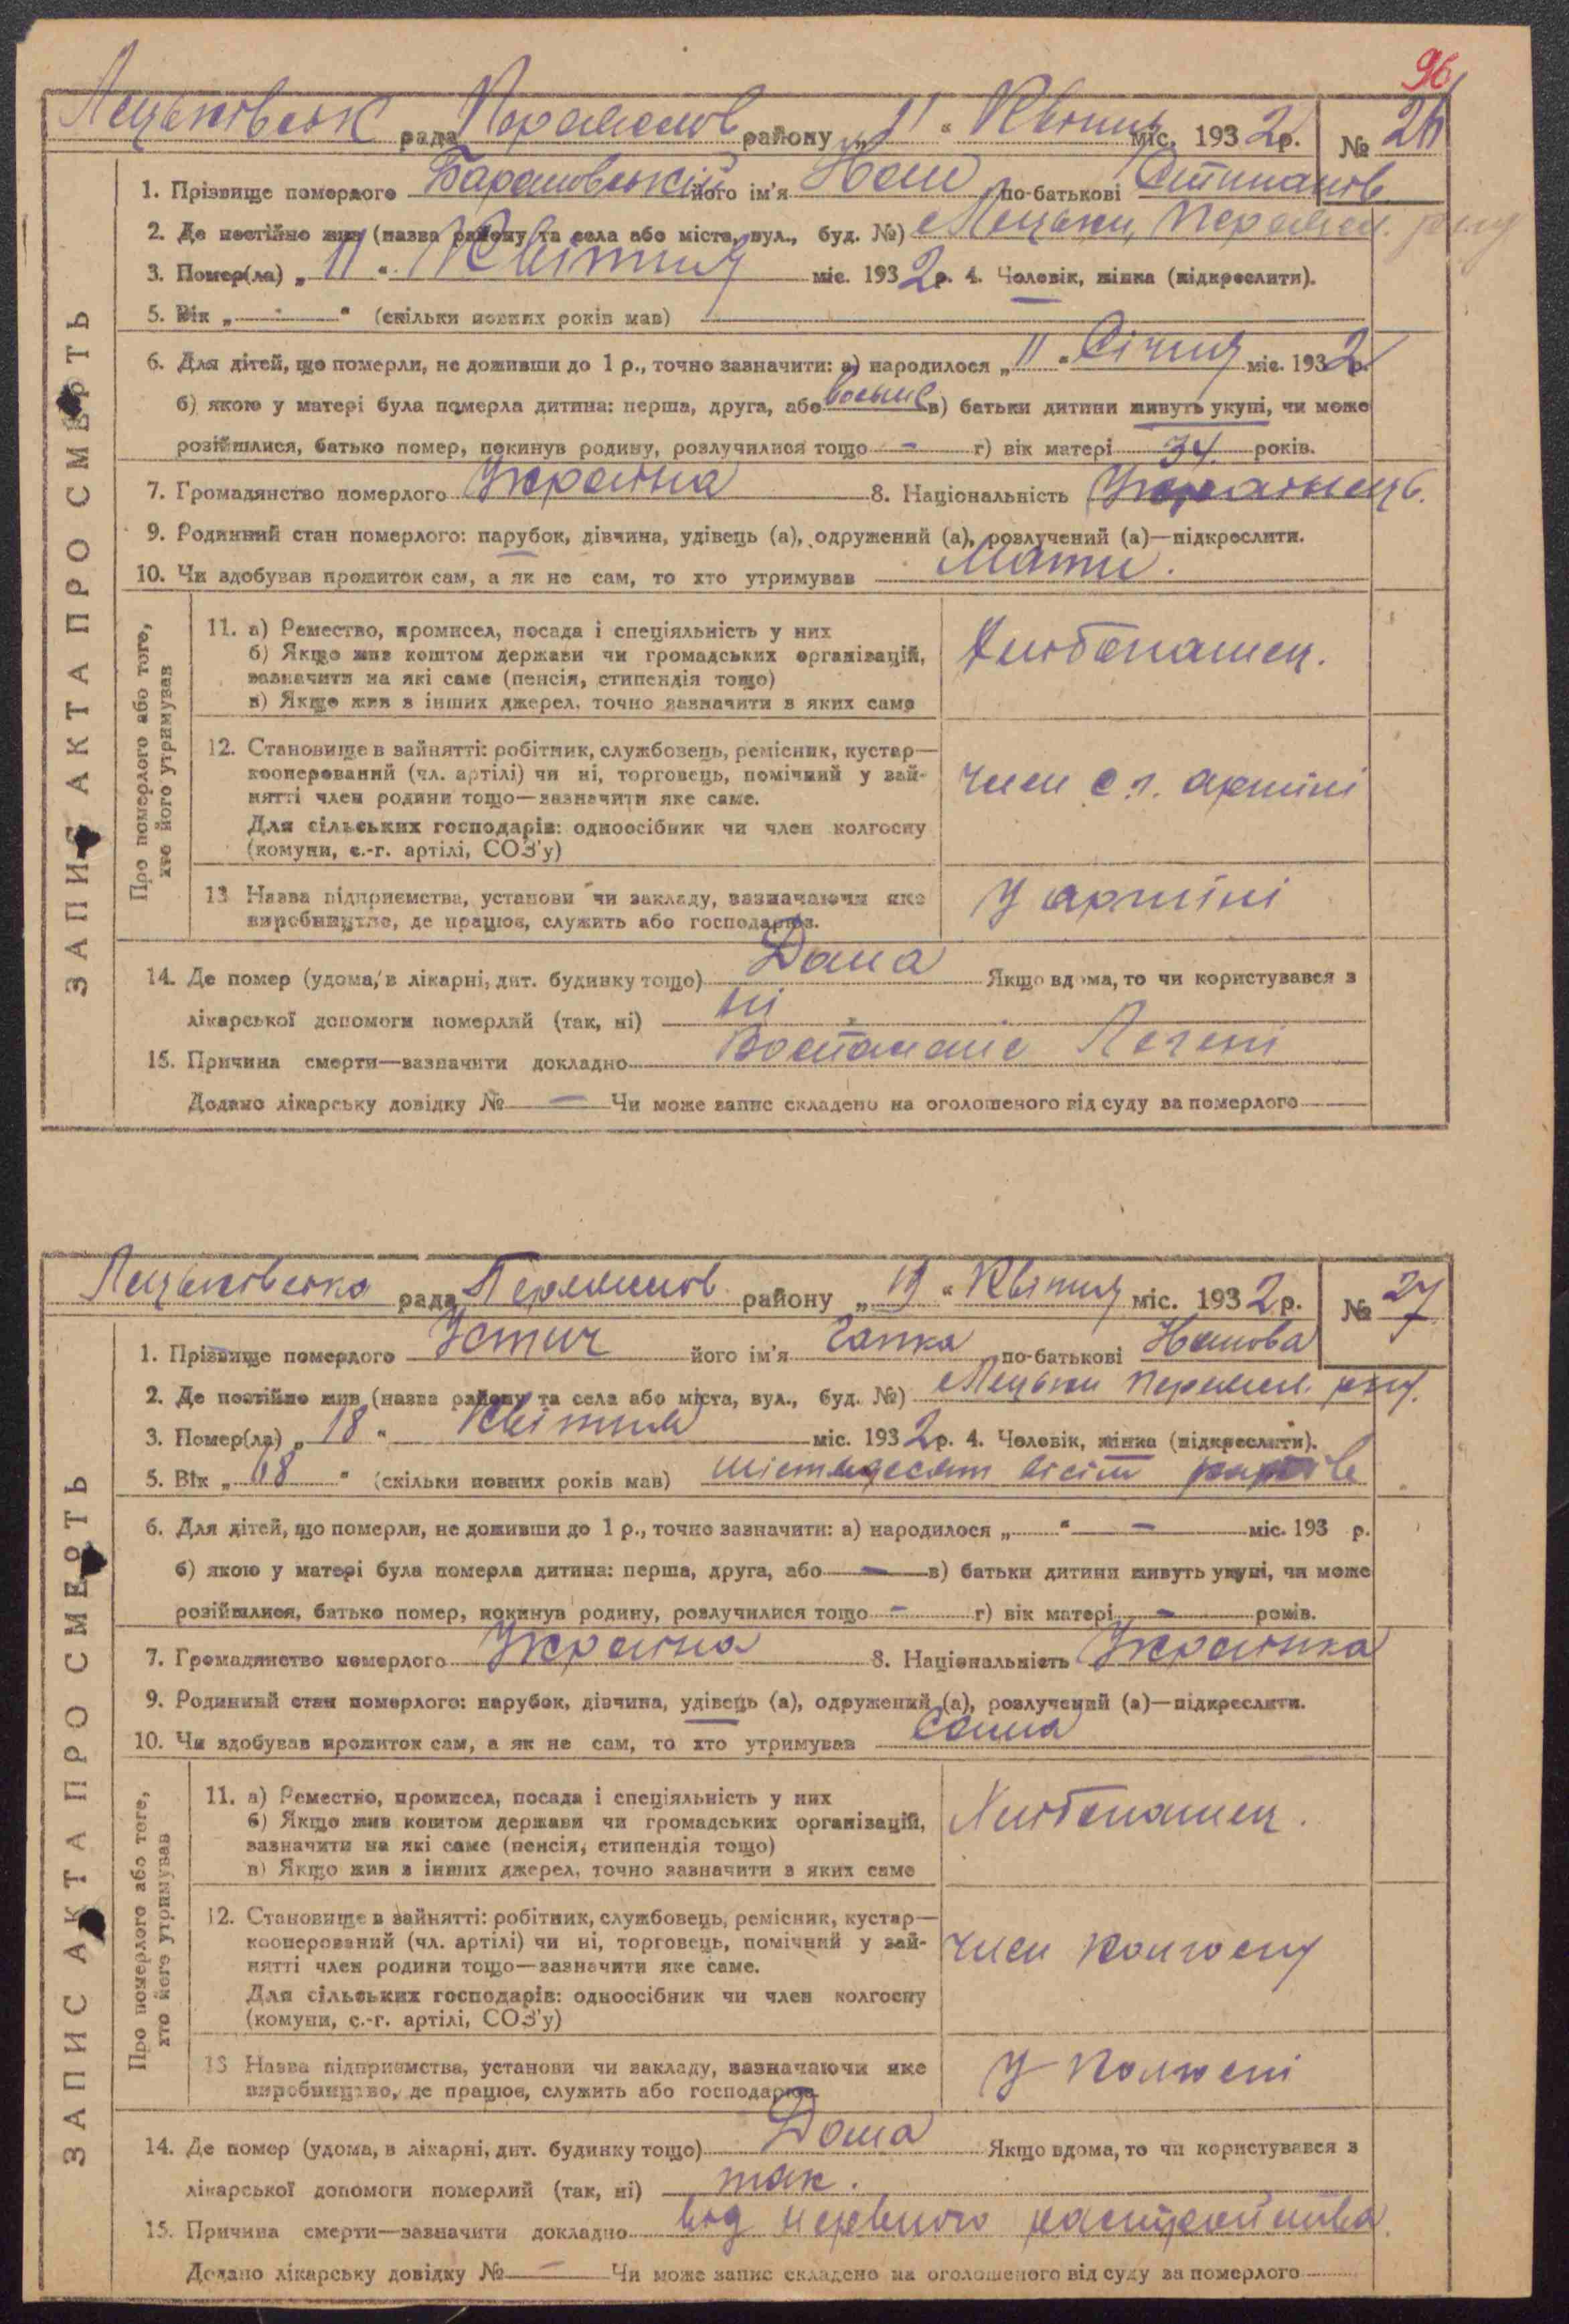 96
рада району „11“ Квітня міс. 1932 р. № 26
1. Прізвище померлого Барановський його ім'я Іван по-батькові
2. Де постійно жив (назва району та села або міста, вул., буд. №)
3. Помер(ла) „11“ Квітня міс. 1932 р. 4. Чоловік, жінка (підкреслити).
5. Вік „-“ (скільки повних років мав)
6. Для дітей, що померли, не доживши до 1 р., точно зазначити: а) народилося „11“ Січня міс. 1932 р.
б) якою у матері була померла дитина: перша, друга, або в) батьки дитини живуть укупі, чи може
розійшлися, батько помер, покинув родину, розлучилися тощо - г) вік матері 34 років.
7. Громадянство померлого Україна 8. Національність Українець.
9. Родинний стан померлого: парубок, дівчина, удівець (а), одружений (а), розлучений (а)—підкреслити.
10. Чи здобував прожиток сам, а як не сам, то хто утримував Мати.
ЗАПИС АКТА ПРО СМЕРТЬ
Про померлого або того, хто його утримував
11. а) Ремество, промисел, посада і спеціяльність у них
б) Якщо жив коштом держави чи громадських організацій,
зазначити на які саме (пенсія, стипендія тощо)
в) Якщо жив з інших джерел, точно зазначити з яких саме
Хлібопашец.
12. Становище в зайнятті: робітник, службовець, ремісник, кустар—
кооперований (чл. артілі) чи ні, торговець, помічний у зай-
нятті член родини тощо—зазначити яке саме.
Для сільських господарів: одноосібник чи член колгоспу
(комуни, с.-г. артілі, СОЗ'у)
член с г. артілі
13 Назва підприємства, установи чи закладу, зазначаючи яке
виробництво, де працює, служить або господарює.
У артілі
14. Де помер (удома, в лікарні, дит. будинку тощо) Дома Якщо вдома, то чи користувався з
лікарської допомоги померлий (так, ні) ні
15. Причина смерти—зазначити докладно Воспаление Легені
Додано лікарську довідку № — Чи може запис складено на оголошеного від суду за померлого
рада району „19“ Квітня міс. 1932 р. № 27
1. Прізвище померлого Устич його ім'я Гапка по-батькові Іванова
2. Де постійно жив (назва району та села або міста, вул., буд. №)
3. Помер(ла) „18“ Квітня міс. 1932 р. 4. Чоловік, жінка (підкреслити).
5. Вік „68“ (скільки повних років мав) шістьдесят вісім
6. Для дітей, що померли, не доживши до 1 р., точно зазначити: а) народилося „ “ — міс. 193 р.
б) якою у матері була померла дитина: перша, друга, або — в) батьки дитини живуть укупі, чи може
розійшлися, батько помер, покинув родину, розлучилися тощо - г) вік матері - років.
7. Громадянство померлого Україна 8. Національність Українка
9. Родинний стан померлого: парубок, дівчина, удівець (а), одружений (а), розлучений (а)—підкреслити.
10. Чи здобував прожиток сам, а як не сам, то хто утримував Сама
ЗАПИС АКТА ПРО СМЕРТЬ
Про померлого або того, хто його утримував
11. а) Ремество, промисел, посада і спеціяльність у них
б) Якщо жив коштом держави чи громадських організацій,
зазначити на які саме (пенсія, стипендія тощо)
в) Якщо жив з інших джерел, точно зазначити з яких саме
Хлібопашец.
12. Становище в зайнятті: робітник, службовець, ремісник, кустар—
кооперований (чл. артілі) чи ні, торговець, помічний у зай-
нятті член родини тощо—зазначити яке саме.
Для сільських господарів: одноосібник чи член колгоспу
(комуни, с.-г. артілі, СОЗ'у)
член колгоспу
13 Назва підприємства, установи чи закладу, зазначаючи яке
виробництво, де працює, служить або господарює
У колгоспі
14. Де помер (удома, в лікарні, дит. будинку тощо) Дома Якщо вдома, то чи користувався з
лікарської допомоги померлий (так, ні) так.
15. Причина смерти—зазначити докладно від нервного
Додано лікарську довідку № — Чи може запис складено на оголошеного від суду за померлого